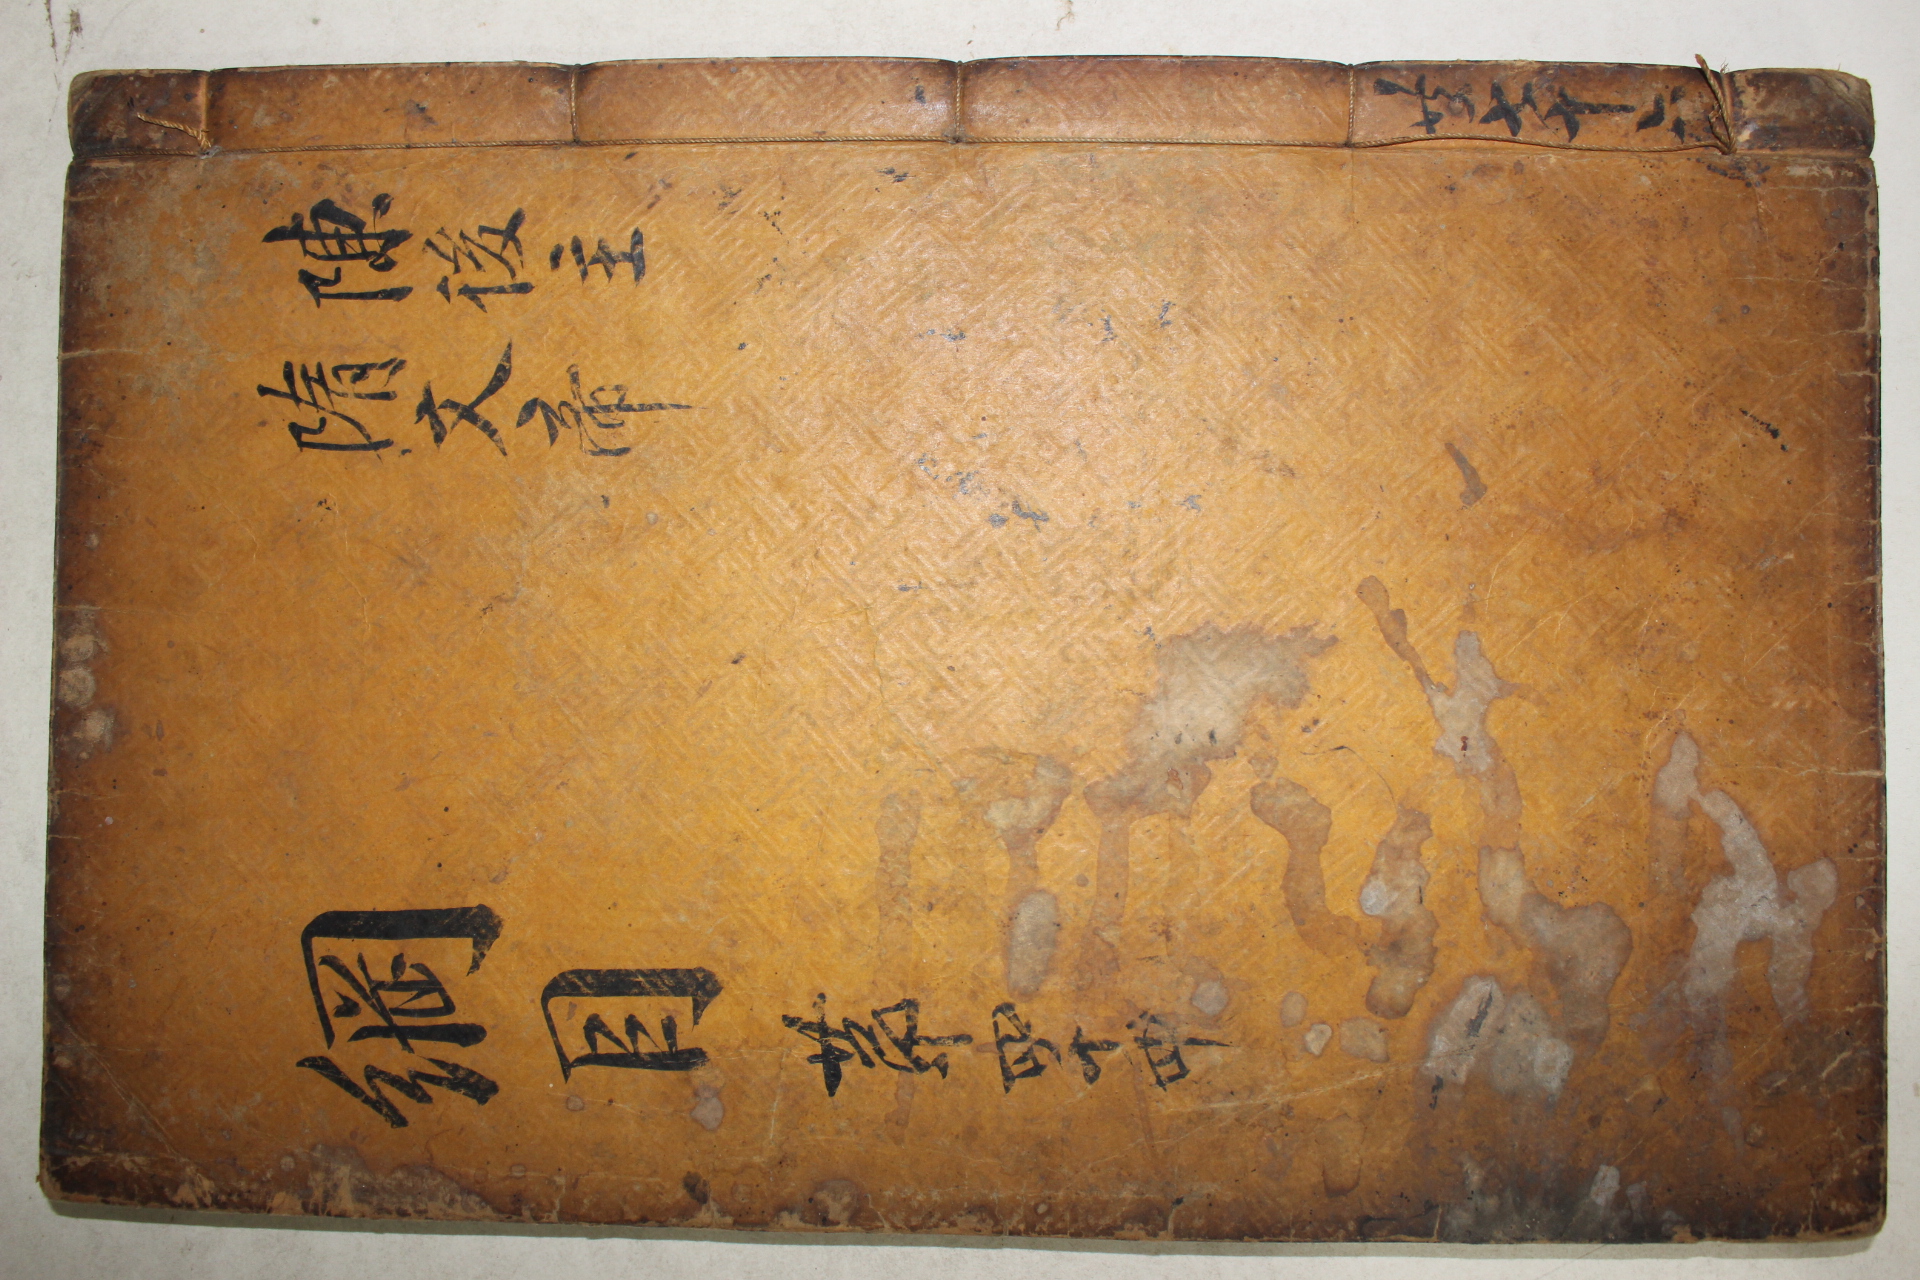 陳後主
隋文帝
綱目 苐四十